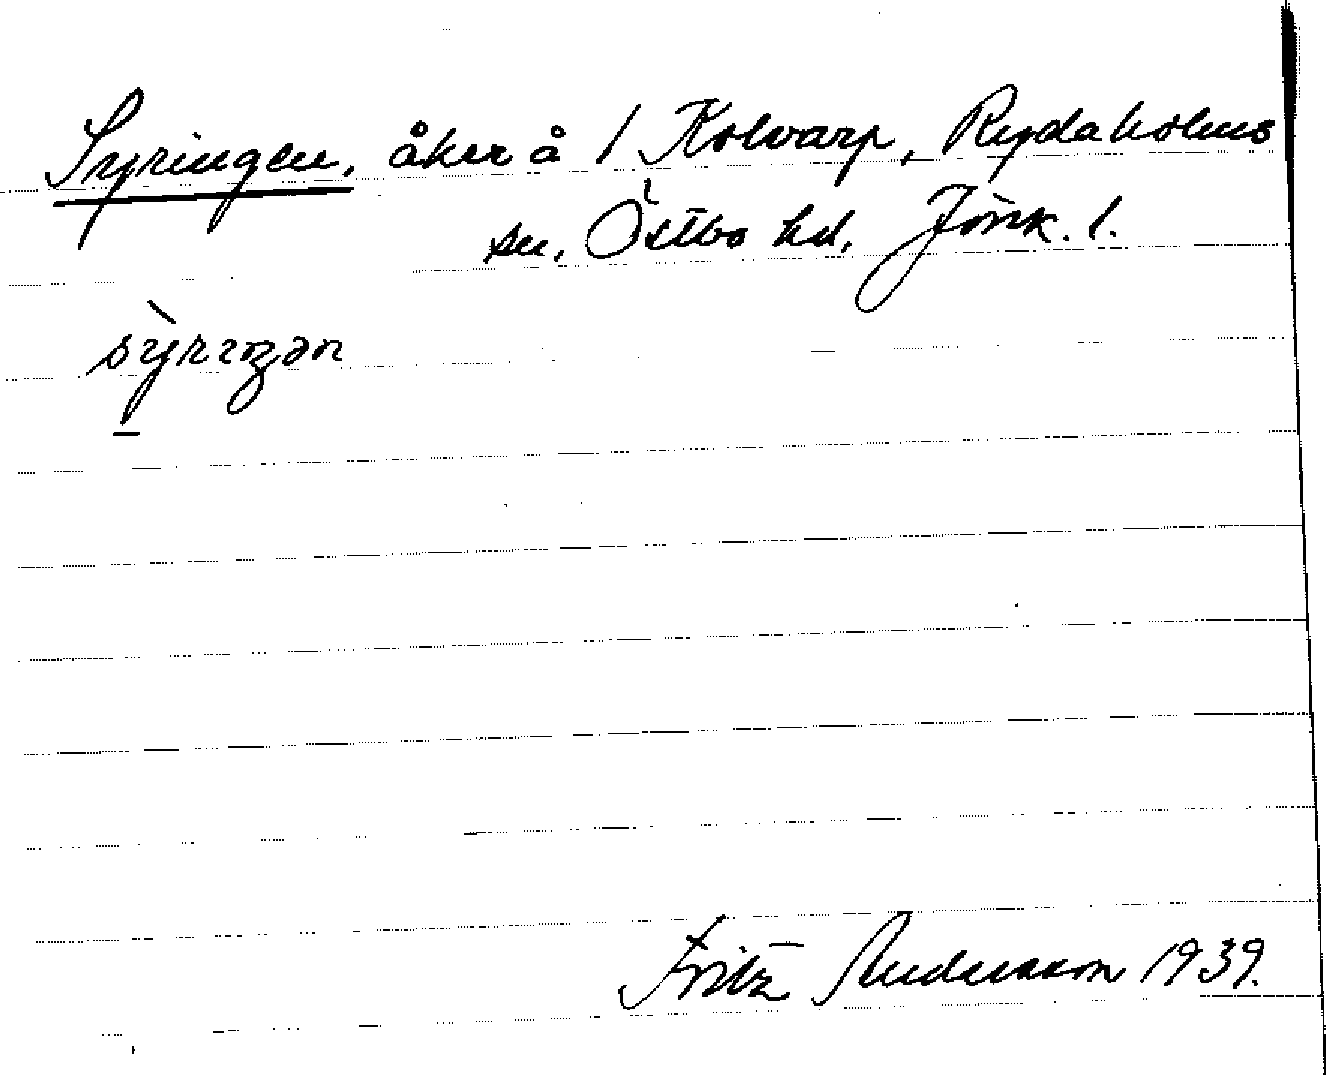 Syringen, åker å 1 Kolvarp, Rydaholms
sn, Östbo hd, Jönk. l.
sỳrıŋən
Fritz Andersson 1939.